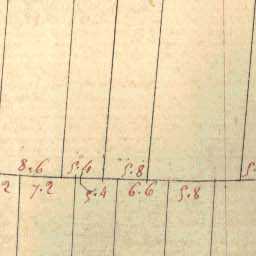 8.6 5.6 5.8 5.
2 7.2 5.4 6.6 5.8